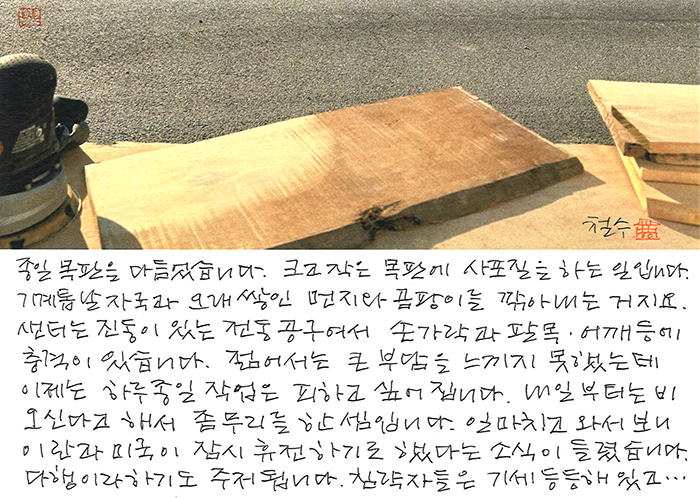 철수
종일 목판을 다듬었습니다. 크고 작은 목판에 사포질을 하는 일입니다.
기계톱날 자국과 오래 쌓인 먼지와 곰팡이를 깎아내는 거지요.
샌더는 진동이 있는 전동공구여서 손가락과 팔목·어깨 등에
충격이 있습니다. 젊어서는 큰 부담을 느끼지 못했는데
이제는 하루종일 작업은 피하고 싶어집니다. 내일부터는 비
오신다고 해서 좀 무리를 한 셈입니다. 일 마치고 와서 보니
이란과 미국이 잠시 휴전하기로 했다는 소식이 들렸습니다.
다행이라 하기도 주저됩니다. 침략자들은 기세등등해 있고…